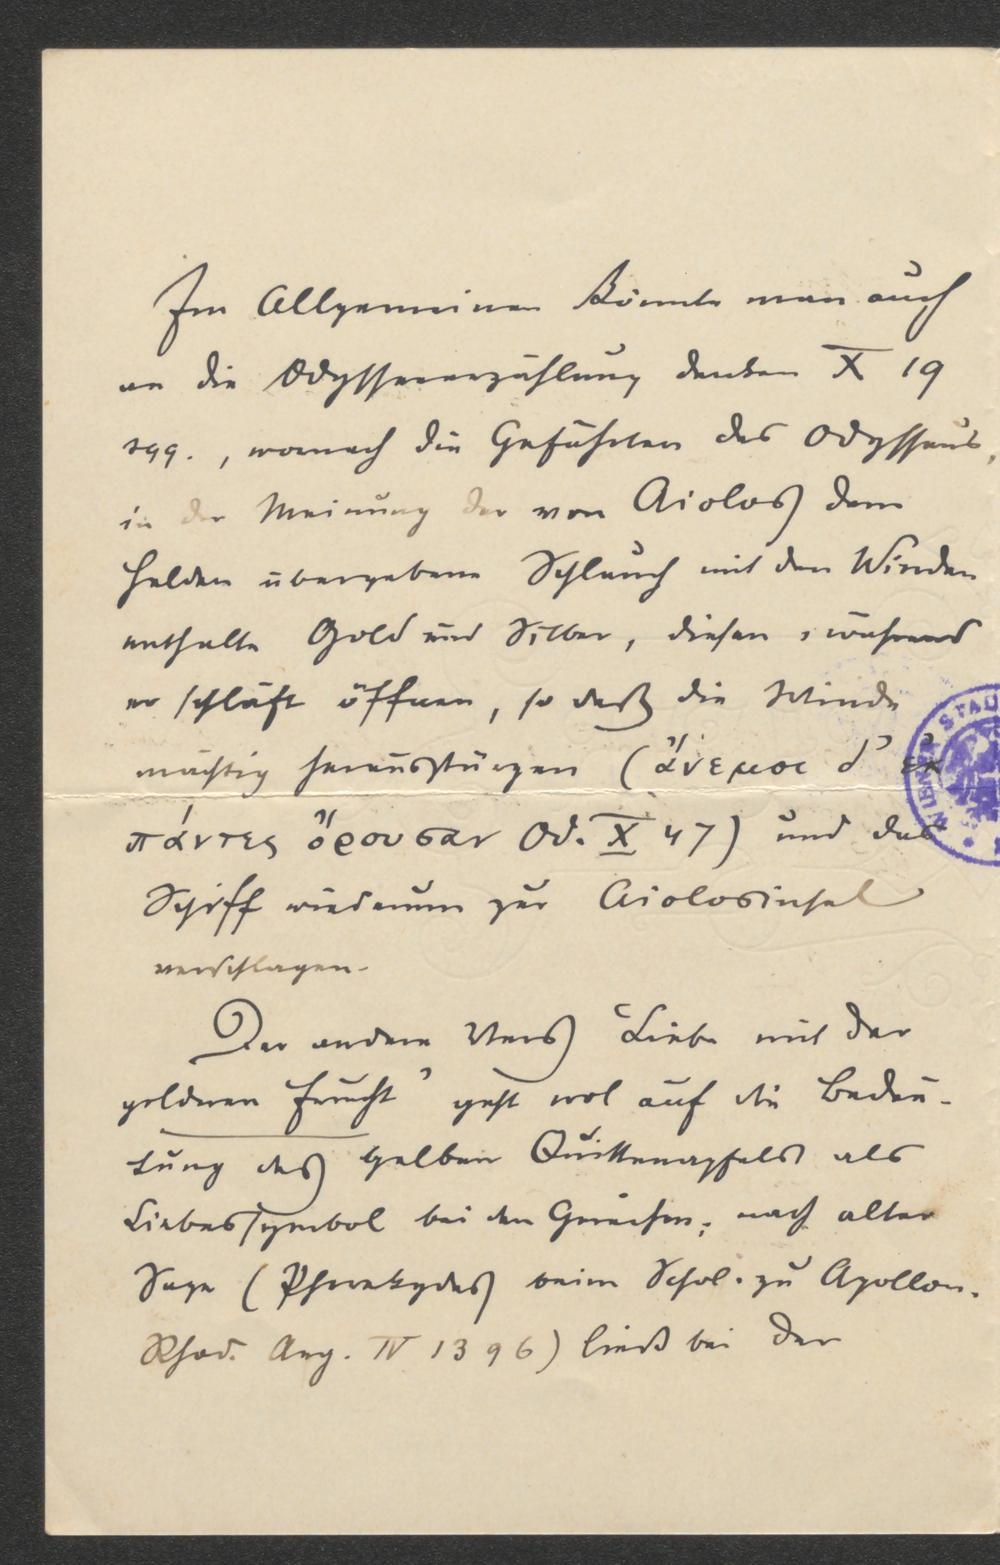 Im Allgemeinen könnte man auch
an die Odysseeerzählung denken X 19
sqq., wonach die Gefährten des Odysseus,
in der Meinung der von Aiolos dem
Helden übergebene Schlauch mit den Winden
enthalte Gold und Silber, diesen, während
er schläft öffnen, so daß die Winde
mächtig herausstürzen (ἄνεμοι δ' ἐκ
πάντες ὄρουσαν Od. X 47) und das
Schiff wiederum zur Aiolosinsel
verschlagen.
Der andere Vers "Liebe mit der
goldenen Frucht" geht wol auf die Bedeu-
tung des gelben Quittenapfels als
Liebessymbol bei den Griechen; nach alter
Sage (Pherekydes beim Schol. zu Apollon.
Rhod. Arg. IV 1396) ließ bei der
STAD